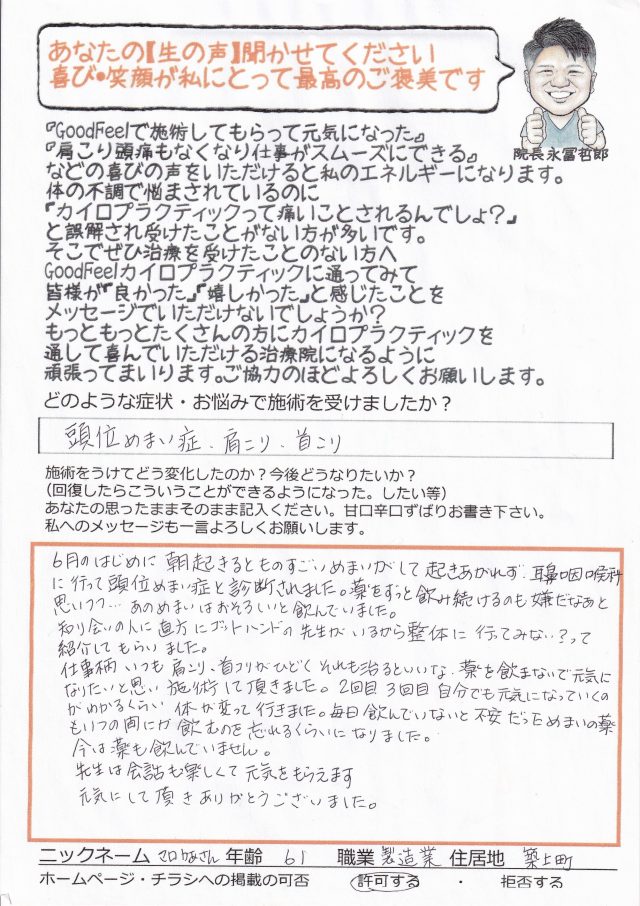 あなたの【生の声】聞かせてください
喜び・笑顔が私にとって最高のご褒美です
院長永冨哲郎
『GoodFeelで施術してもらって元気になった』
『肩こり頭痛もなくなり仕事がスムーズにできる』
などの喜びの声をいただけると私のエネルギーになります。
体の不調で悩まされているのに
『カイロプラクティックって痛いことされるんでしょ?』
と誤解され受けたことがない方が多いです。
そこでぜひ治療を受けたことのない方へ
GoodFeelカイロプラクティックに通ってみて
皆様が『良かった』『嬉しかった』と感じたことを
メッセージでいただけないでしょうか?
もっともっとたくさんの方にカイロプラクティックを
通して喜んでいただける治療院になるように
頑張ってまいります。ご協力のほどよろしくお願いします。
どのような症状・お悩みで施術を受けましたか?
頭位めまい症、肩こり、首こり
施術をうけてどう変化したのか?今後どうなりたいか?
(回復したらこういうことができるようになった。したい等)
あなたの思ったままそのまま記入ください。甘口辛口ずばりお書き下さい。
私へのメッセージも一言よろしくお願いします。
6月のはじめに 朝起きるとものすごいめまいがして起きあがれず、耳鼻咽喉科
に行って頭位めまい症と診断されました。薬をずっと飲み続けるのも嫌だなぁと
思いつつ…あのめまいはおそろしいと飲んでいました。
知り合いの人に直方にゴットハンドの先生がいるから整体に行ってみない?って
紹介してもらいました。
仕事柄いつも肩こり、首コリがひどく それも治るといいな、薬を飲まないで元気に
なりたいと思い施術して頂きました。2回目3回目自分でも元気になっていくの
がわかるくらい 体が変って行きました。毎日飲んでいないと不安だっためまいの薬
もいつの間にか飲むのを忘れるくらいになりました。
今は薬も飲んでいません。
先生は会話も楽しくて元気をもらえます
元気にして頂きありがとうございました。
ニックネーム マロかあさん 年齢 61 職業 製造業 住居地 築上町
ホームページ・チラシへの掲載の可否 許可する ・ 拒否する